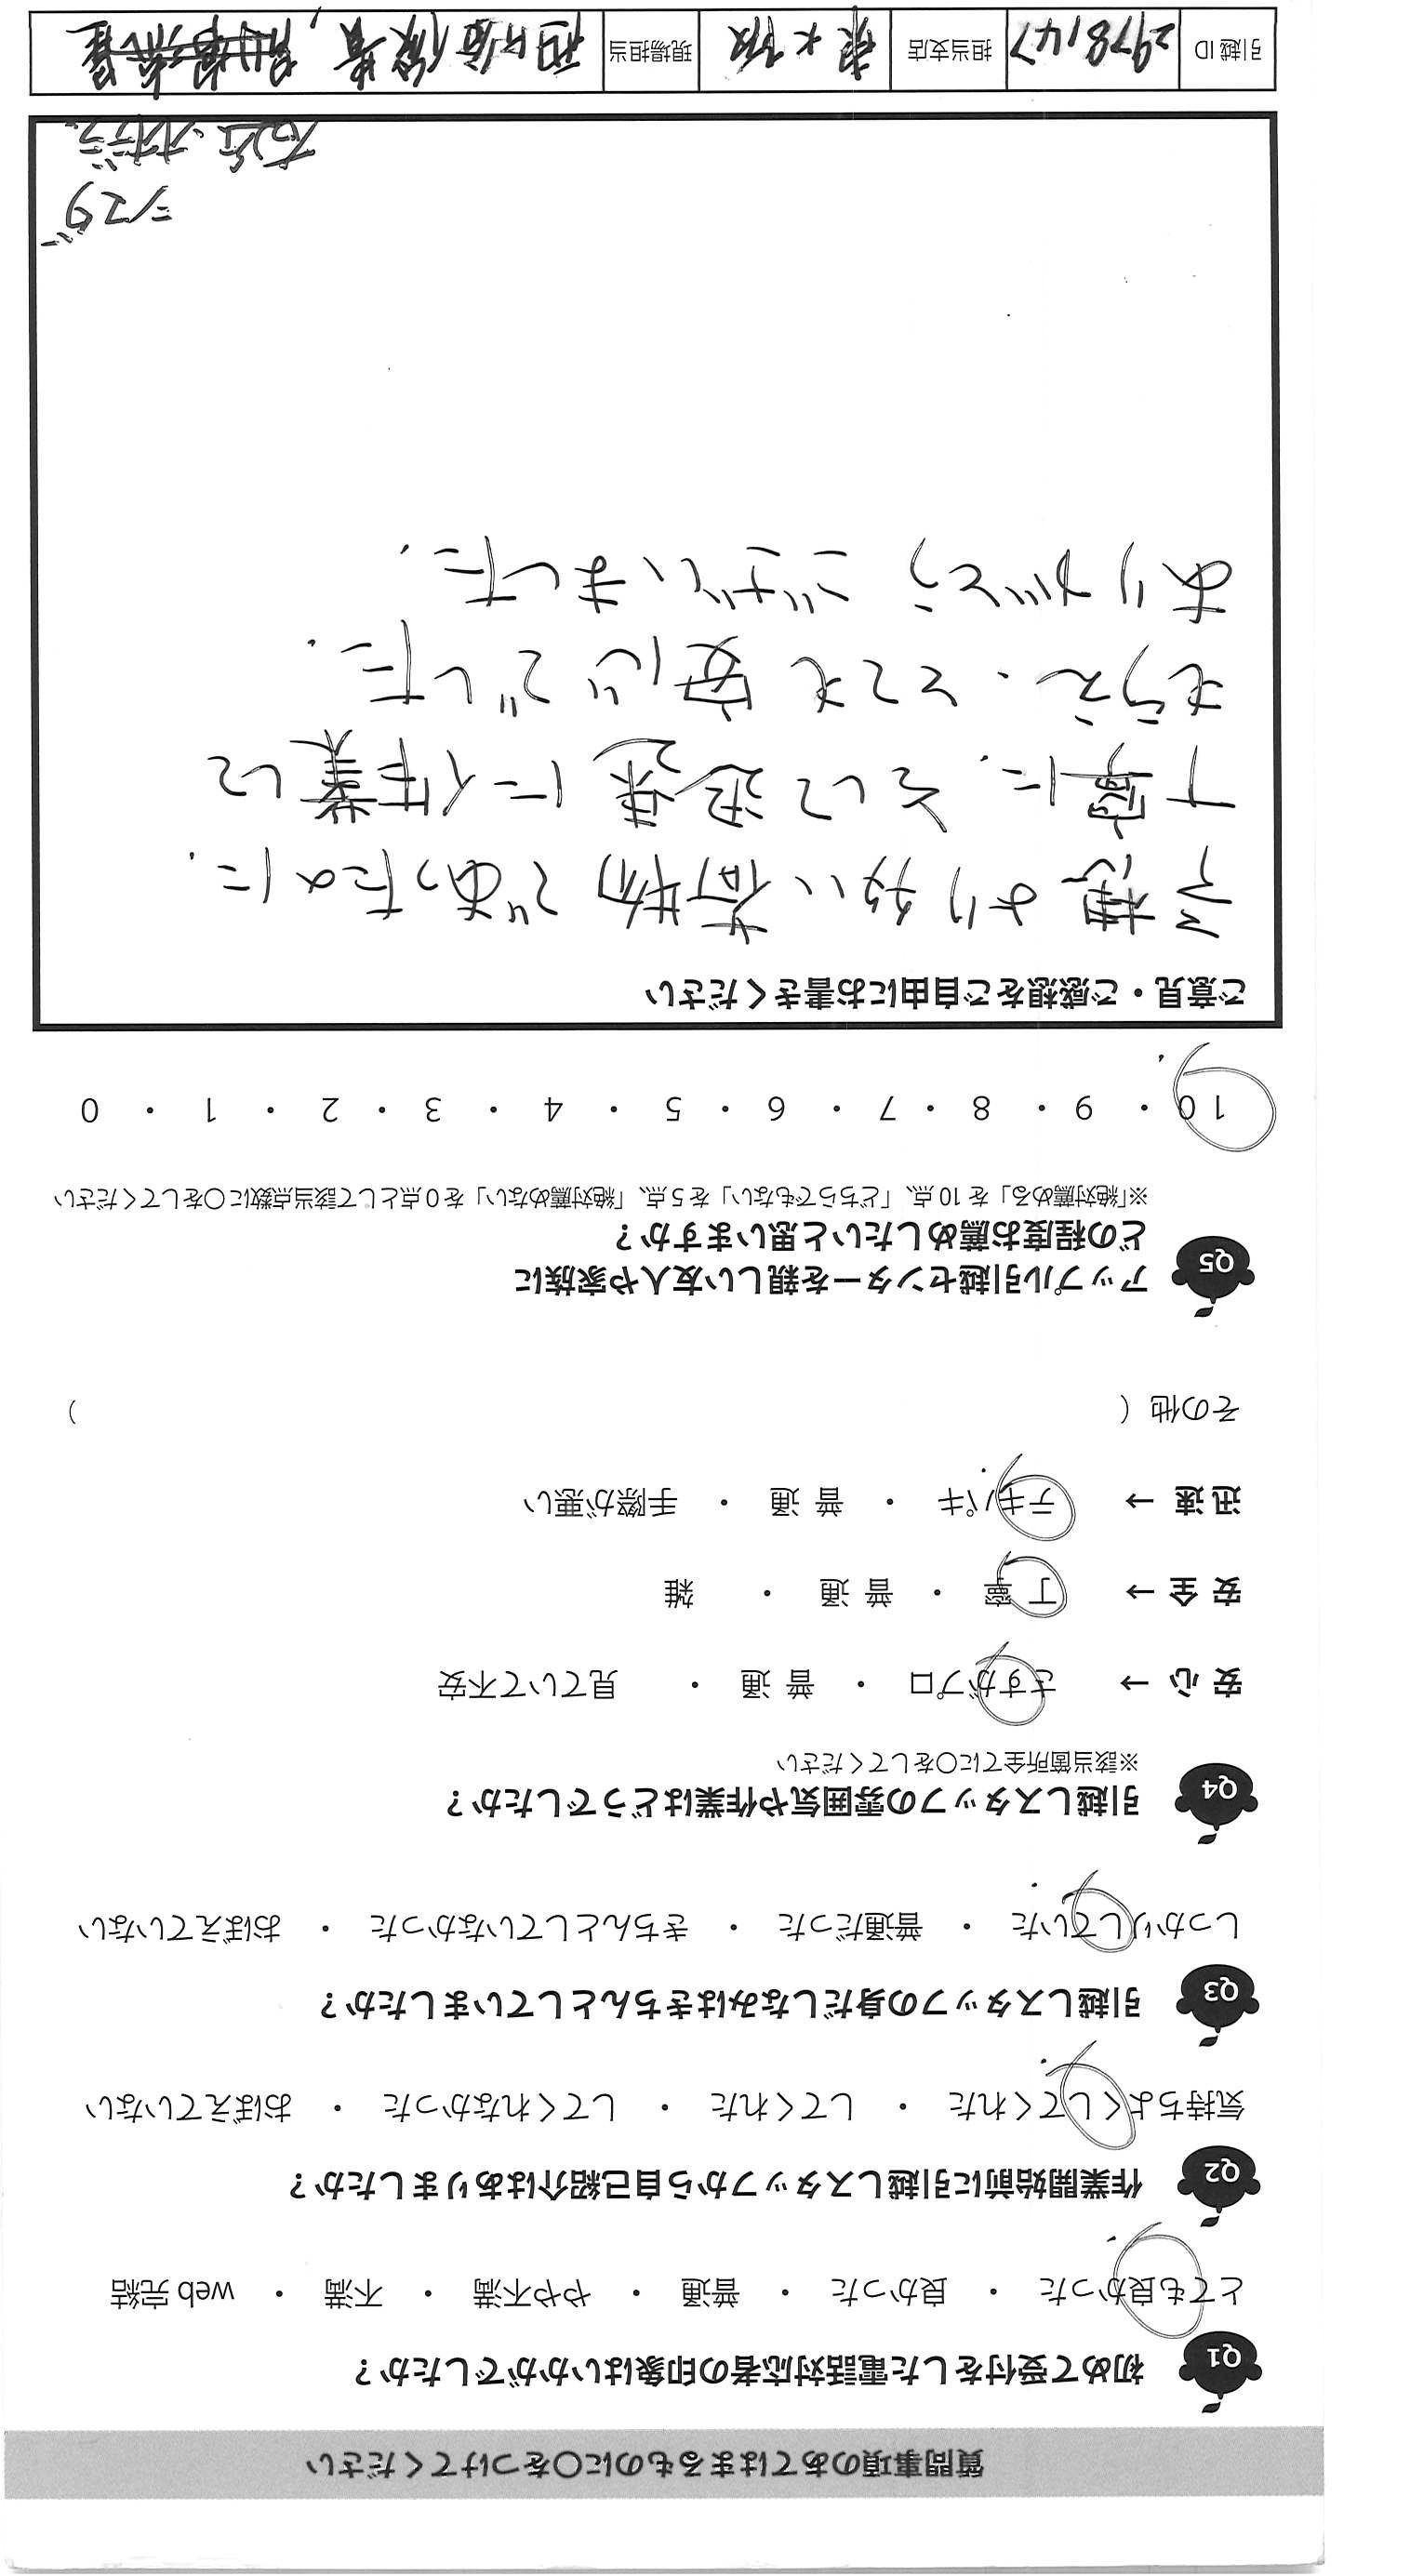 質問事項のあてはまるものに○をつけてください
Q1 初めて受付をした電話対応者の印象はいかがでしたか？
とても良かった ・ 良かった ・ 普通 ・ やや不満 ・ 不満 ・ web 完結
Q2 作業開始前に引越しスタッフから自己紹介はありましたか？
気持ちよくしてくれた ・ してくれた ・ してくれなかった ・ おぼえていない
Q3 引越しスタッフの身だしなみはきちんとしていましたか？
しっかりしていた ・ 普通だった ・ きちんとしていなかった ・ おぼえていない
Q4 引越しスタッフの雰囲気や作業はどうでしたか？
※該当箇所全てに○をしてください
安心 → さすがプロ ・ 普通 ・ 見ていて不安
安全 → 丁寧 ・ 普通 ・ 雑
迅速 → テキパキ ・ 普通 ・ 手際が悪い
その他（ ）
Q5 アップル引越センターを親しい友人や家族に
どの程度お薦めしたいと思いますか？
※「絶対薦める」を 10 点、「どちらでもない」を 5 点、「絶対薦めない」を 0 点として該当点数に○をしてください
10 ・ 9 ・ 8 ・ 7 ・ 6 ・ 5 ・ 4 ・ 3 ・ 2 ・ 1 ・ 0
ご意見・ご感想をご自由にお書きください
予想より多い荷物であったのに、
丁寧に、そして迅速に作業して
もらえ、とても安心でした。
ありがとうございました。
引越 ID 2978147 担当支店 東大阪 現場担当